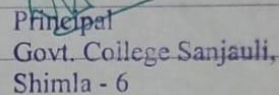 Principal
Govt. College Sanjauli,
Shimla - 6